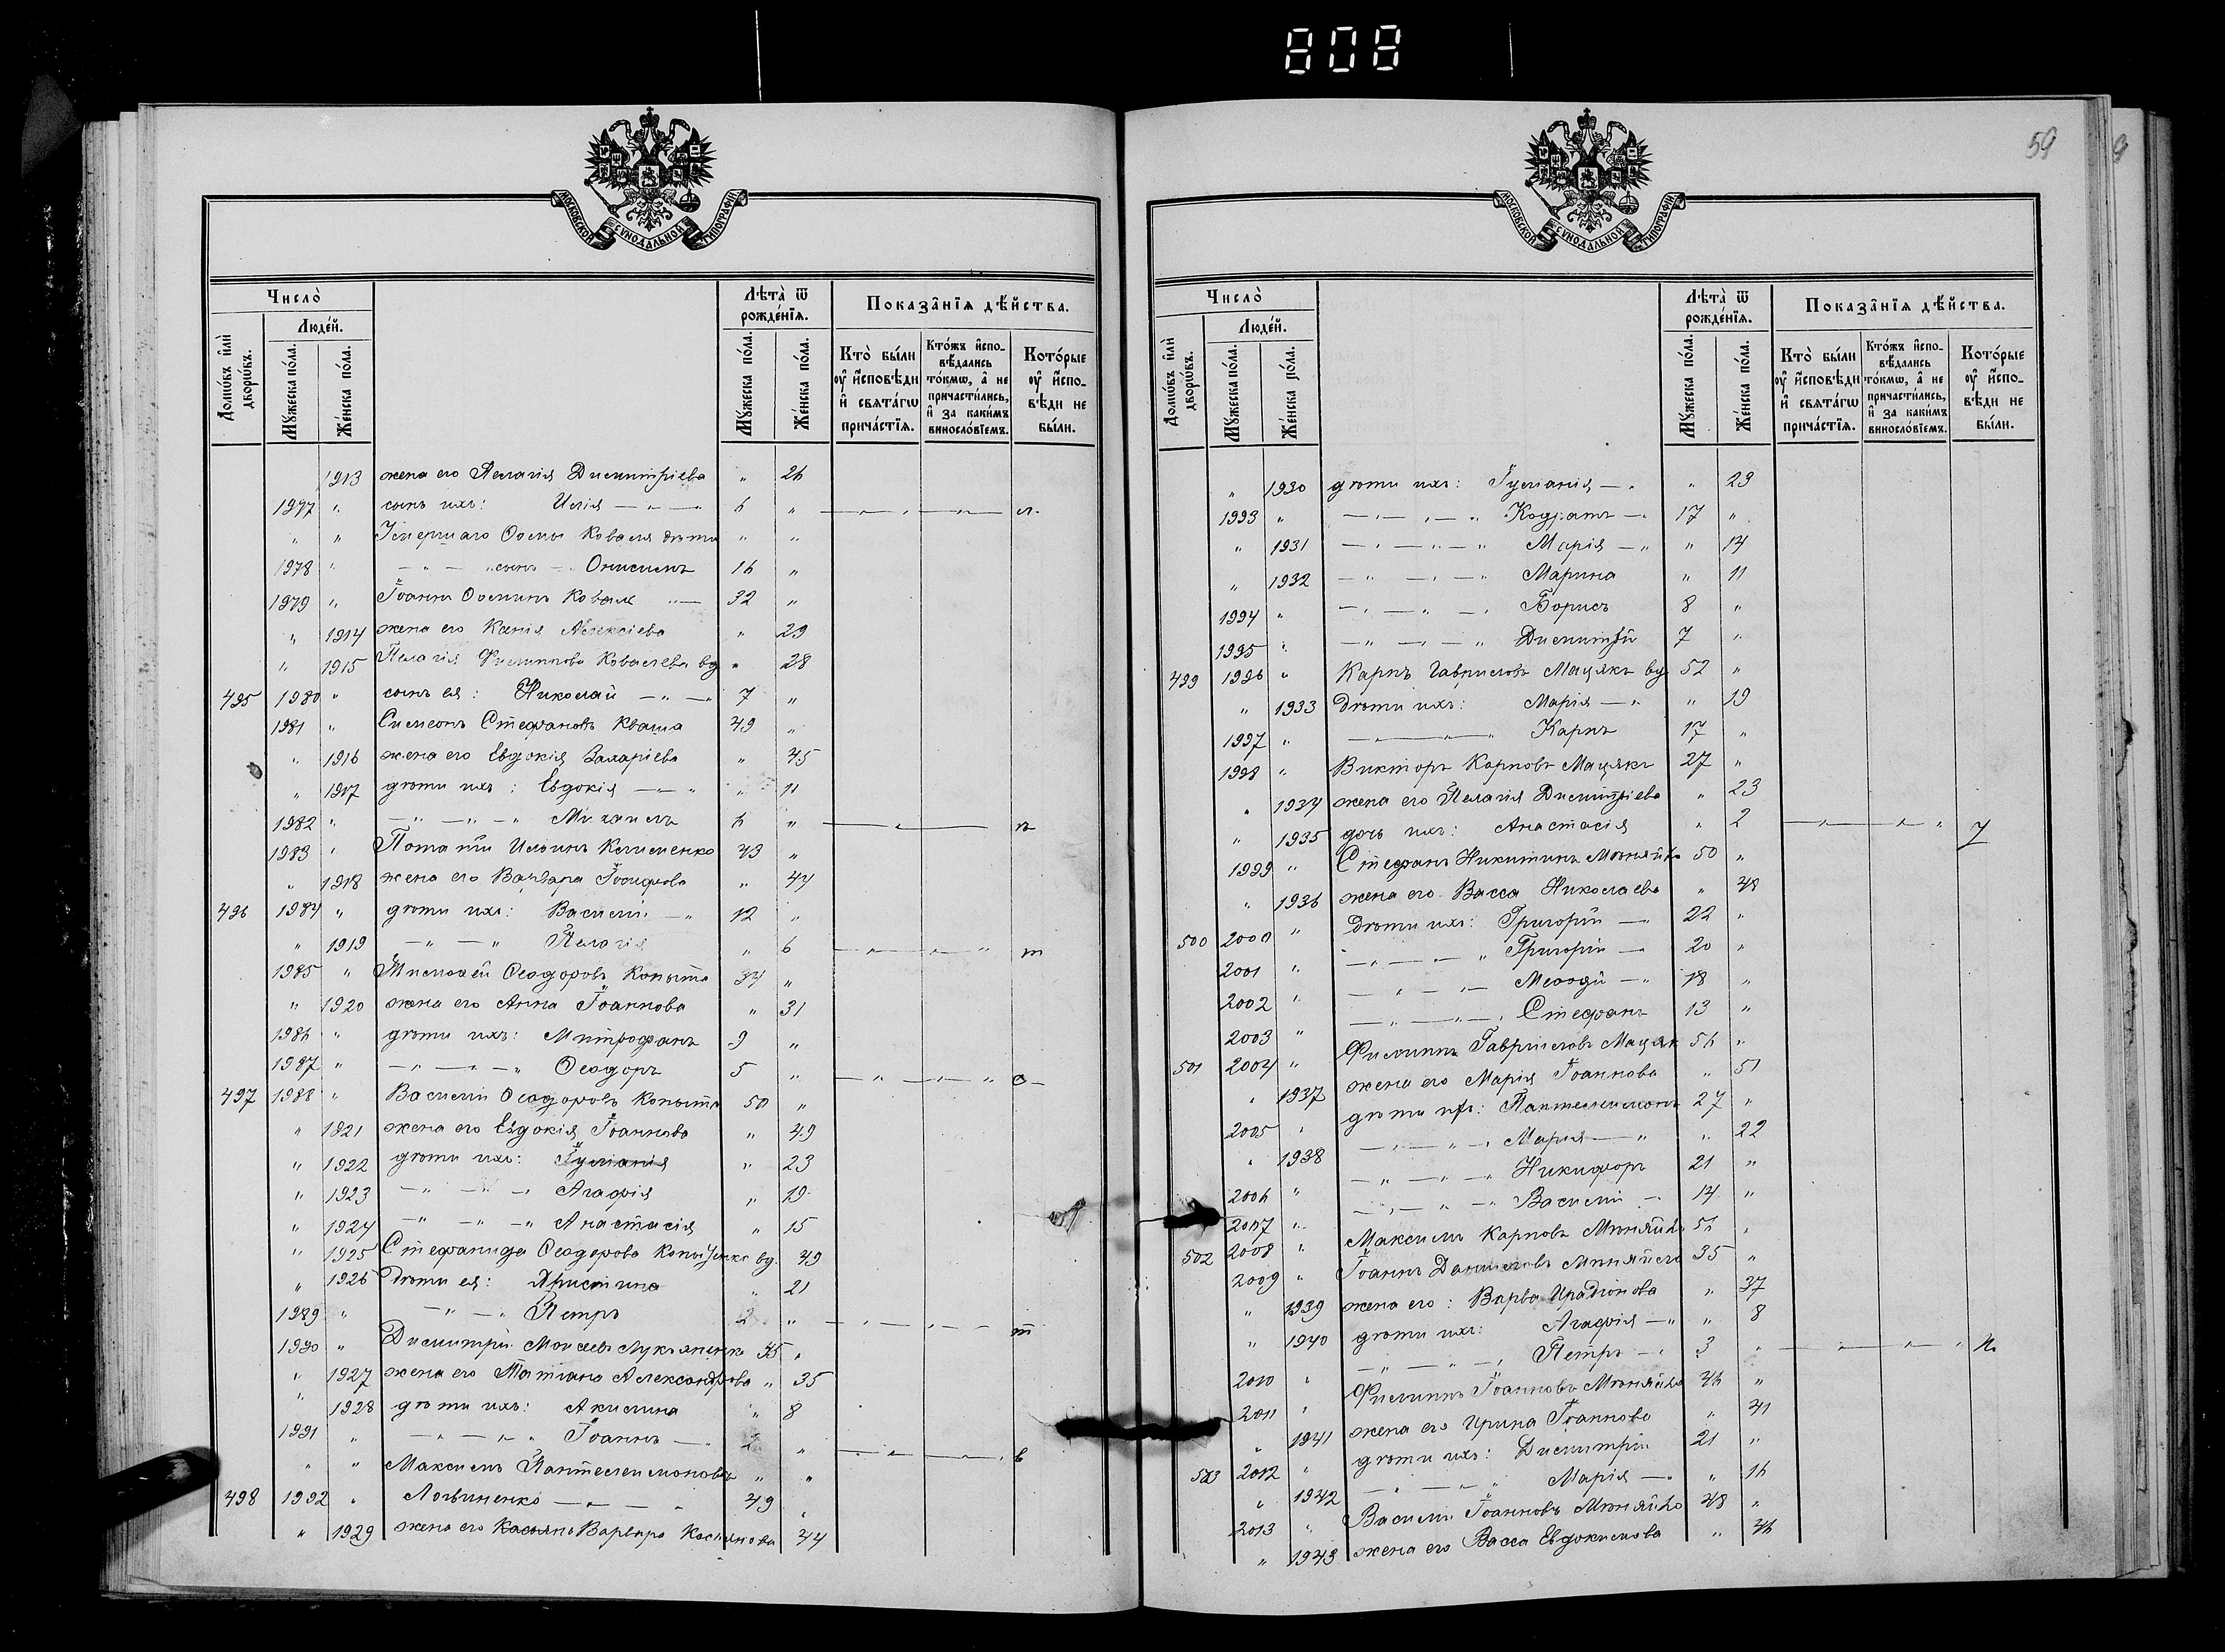 808
59
МОСКОВСКОЙ СѴНОДАЛЬНОЙ ТИПОГРАФІИ.
Число̀
Людéй.
Домѡ́въ и҆лѝ дворѡ́въ.
Мꙋ́жеска по́ла.
Же́нска по́ла.
Лѣ́та ѿ рожде́нїѧ.
Мꙋ́жеска по́ла.
Же́нска по́ла.
Показа̑нїѧ дѣ́йства.
Кто̀ бы́ли ᲂу҆ и҆сповѣди и҆ свѧта́гѡ прича́стїѧ.
Кто́жъ и҆сповѣ́дались то́кмѡ, а҆ не причасти́лись, и҆ за каки́мъ винослові́емъ.
Кото́рые ᲂу҆ и҆сповѣ́ди не бы́ли.
1913 жена его Пелагія Димитріева " 26
1977 " сынъ ихъ: Илія — " — 6 " м.
" " Ѳомы Коваля дѣти " "
1978 " — " — " сынъ — Онисимъ 16 "
1979 " Іоаннъ Ѳоминъ Коваль " — 32 "
" 1914 жена его Ксенія Алексіева " 29
" 1915 Пелагія Филиппова Ковалева вд " 28
495 1980 " сынъ ея: Николай — " — 7 "
1981 " Симеонъ Стефановъ Кваша 49 "
" 1916 жена его Евдокія Захаріева " 45
" 1917 дѣти ихъ: Евдокія — " " 11
1982 " — " — " — " Михаилъ 6 "
1983 " Потапій Ильинъ Клименко 43 "
" 1918 жена его Варвара Іосифова " 44
496 1984 " дѣти ихъ: Василій — " 12 "
" 1919 — " — " Пелагія " 6 m
1985 " Тимоѳей Ѳеодоровъ Копыта 34 "
" 1920 жена его Анна Іоаннова " 31
1986 " дѣти ихъ: Митрофанъ 9 "
1987 " — " — " — " Ѳеодоръ 5 "
497 1988 " Василій Ѳеодоровъ Копыта 50 "
" 1921 жена его Евдокія Іоаннова " 49
" 1922 дѣти ихъ: Іуліанія " 23
" 1923 — " — " — " Агафія " 19
" 1924 — " — " — " Анастасія " 15
" 1925 Стефанида Ѳеодорова вд. 49
" 1926 Дѣти ея: Христина " 21
1989 " — " — " Петръ 2 " m
1990 " Димитрій Моисеевъ Лукьяненко 35 "
" 1927 жена его Татіана Александрова " 35
" 1928 дѣти ихъ: Акилина " 8
1991 " — " — " — " Іоаннъ — " в
" " Максимъ Пантелеимоновъ " "
498 1992 " Логвиненко — " — " 49 "
" 1929 жена его Варвара Касіянова " 44
Число̀
Людéй.
Домѡ́въ и҆лѝ дворѡ́въ.
Мꙋ́жеска по́ла.
Же́нска по́ла.
Лѣ́та ѿ рожде́нїѧ.
Мꙋ́жеска по́ла.
Же́нска по́ла.
Показа̑нїѧ дѣ́йства.
Кто̀ бы́ли ᲂу҆ и҆сповѣди и҆ свѧта́гѡ прича́стїѧ.
Кто́жъ и҆сповѣ́дались то́кмѡ, а҆ не причасти́лись, и҆ за каки́мъ винослові́емъ.
Кото́рые ᲂу҆ и҆сповѣ́ди не бы́ли.
МОСКОВСКОЙ СѴНОДАЛЬНОЙ ТИПОГРАФІИ.
" 1930 дѣти ихъ: Іуліанія — " " 23
1993 " — " — " — " Кодратъ — " 17 "
" 1931 — " — " — " Марія — " " 14
" 1932 — " — " — " Марина " 11
1994 " — " — " — " Борисъ 8 "
1995 " — " — " — " Димитрій 7 "
499 1996 " Карпъ Гавриловъ Мацякъ вд 52 "
" 1933 Дѣти ихъ: Марія — " " 19
1997 " — " — " Карпъ 17 "
1998 " Викторъ Карповъ Мацякъ 27 "
" 1934 жена его Пелагія Димитріева " 23
" 1935 дочь ихъ: Анастасія " 2
1999 " Стефанъ Никитинъ Мѣняйло 50 "
" 1936 жена его Васса Николаева " 48
500 2000 " Дѣти ихъ: Григорій — " 22 "
2001 " — " — " — " Григорій — 20 "
2002 " — " — " — Меѳодій — " 18 "
2003 " — " — " — " Стефанъ 13 "
501 2004 " Филиппъ Гавриловъ Мацяк 56 "
" 1937 жена его Марія Іоаннова " 51
2005 " дѣти ихъ: Пантелеимонъ 27 "
" 1938 — " — " — " Марія — " " 22
2006 " — " — " — " Никифоръ 21 "
2007 " — " — " — " Василій — " 14 "
502 2008 " Максимъ Карповъ Мѣняйло 51 "
2009 " Іоаннъ Даниловъ Мѣняйло 35 "
" 1939 жена его: Варва Иродіонова " 37
" 1940 дѣти ихъ: Агафія — " " 8
2010 " — " — " — " Петръ — " 3 "
2011 " Филиппъ Іоанновъ Мѣняйло 46 "
" 1941 жена его Ирина Іоаннова " 41
503 2012 " дѣти ихъ: Димитрій 21 "
" 1942 — " — " — " Марія — " " 16
2013 " Василій Іоанновъ Мѣняйло 48 "
" 1943 жена его Васса Евдокимова " 46